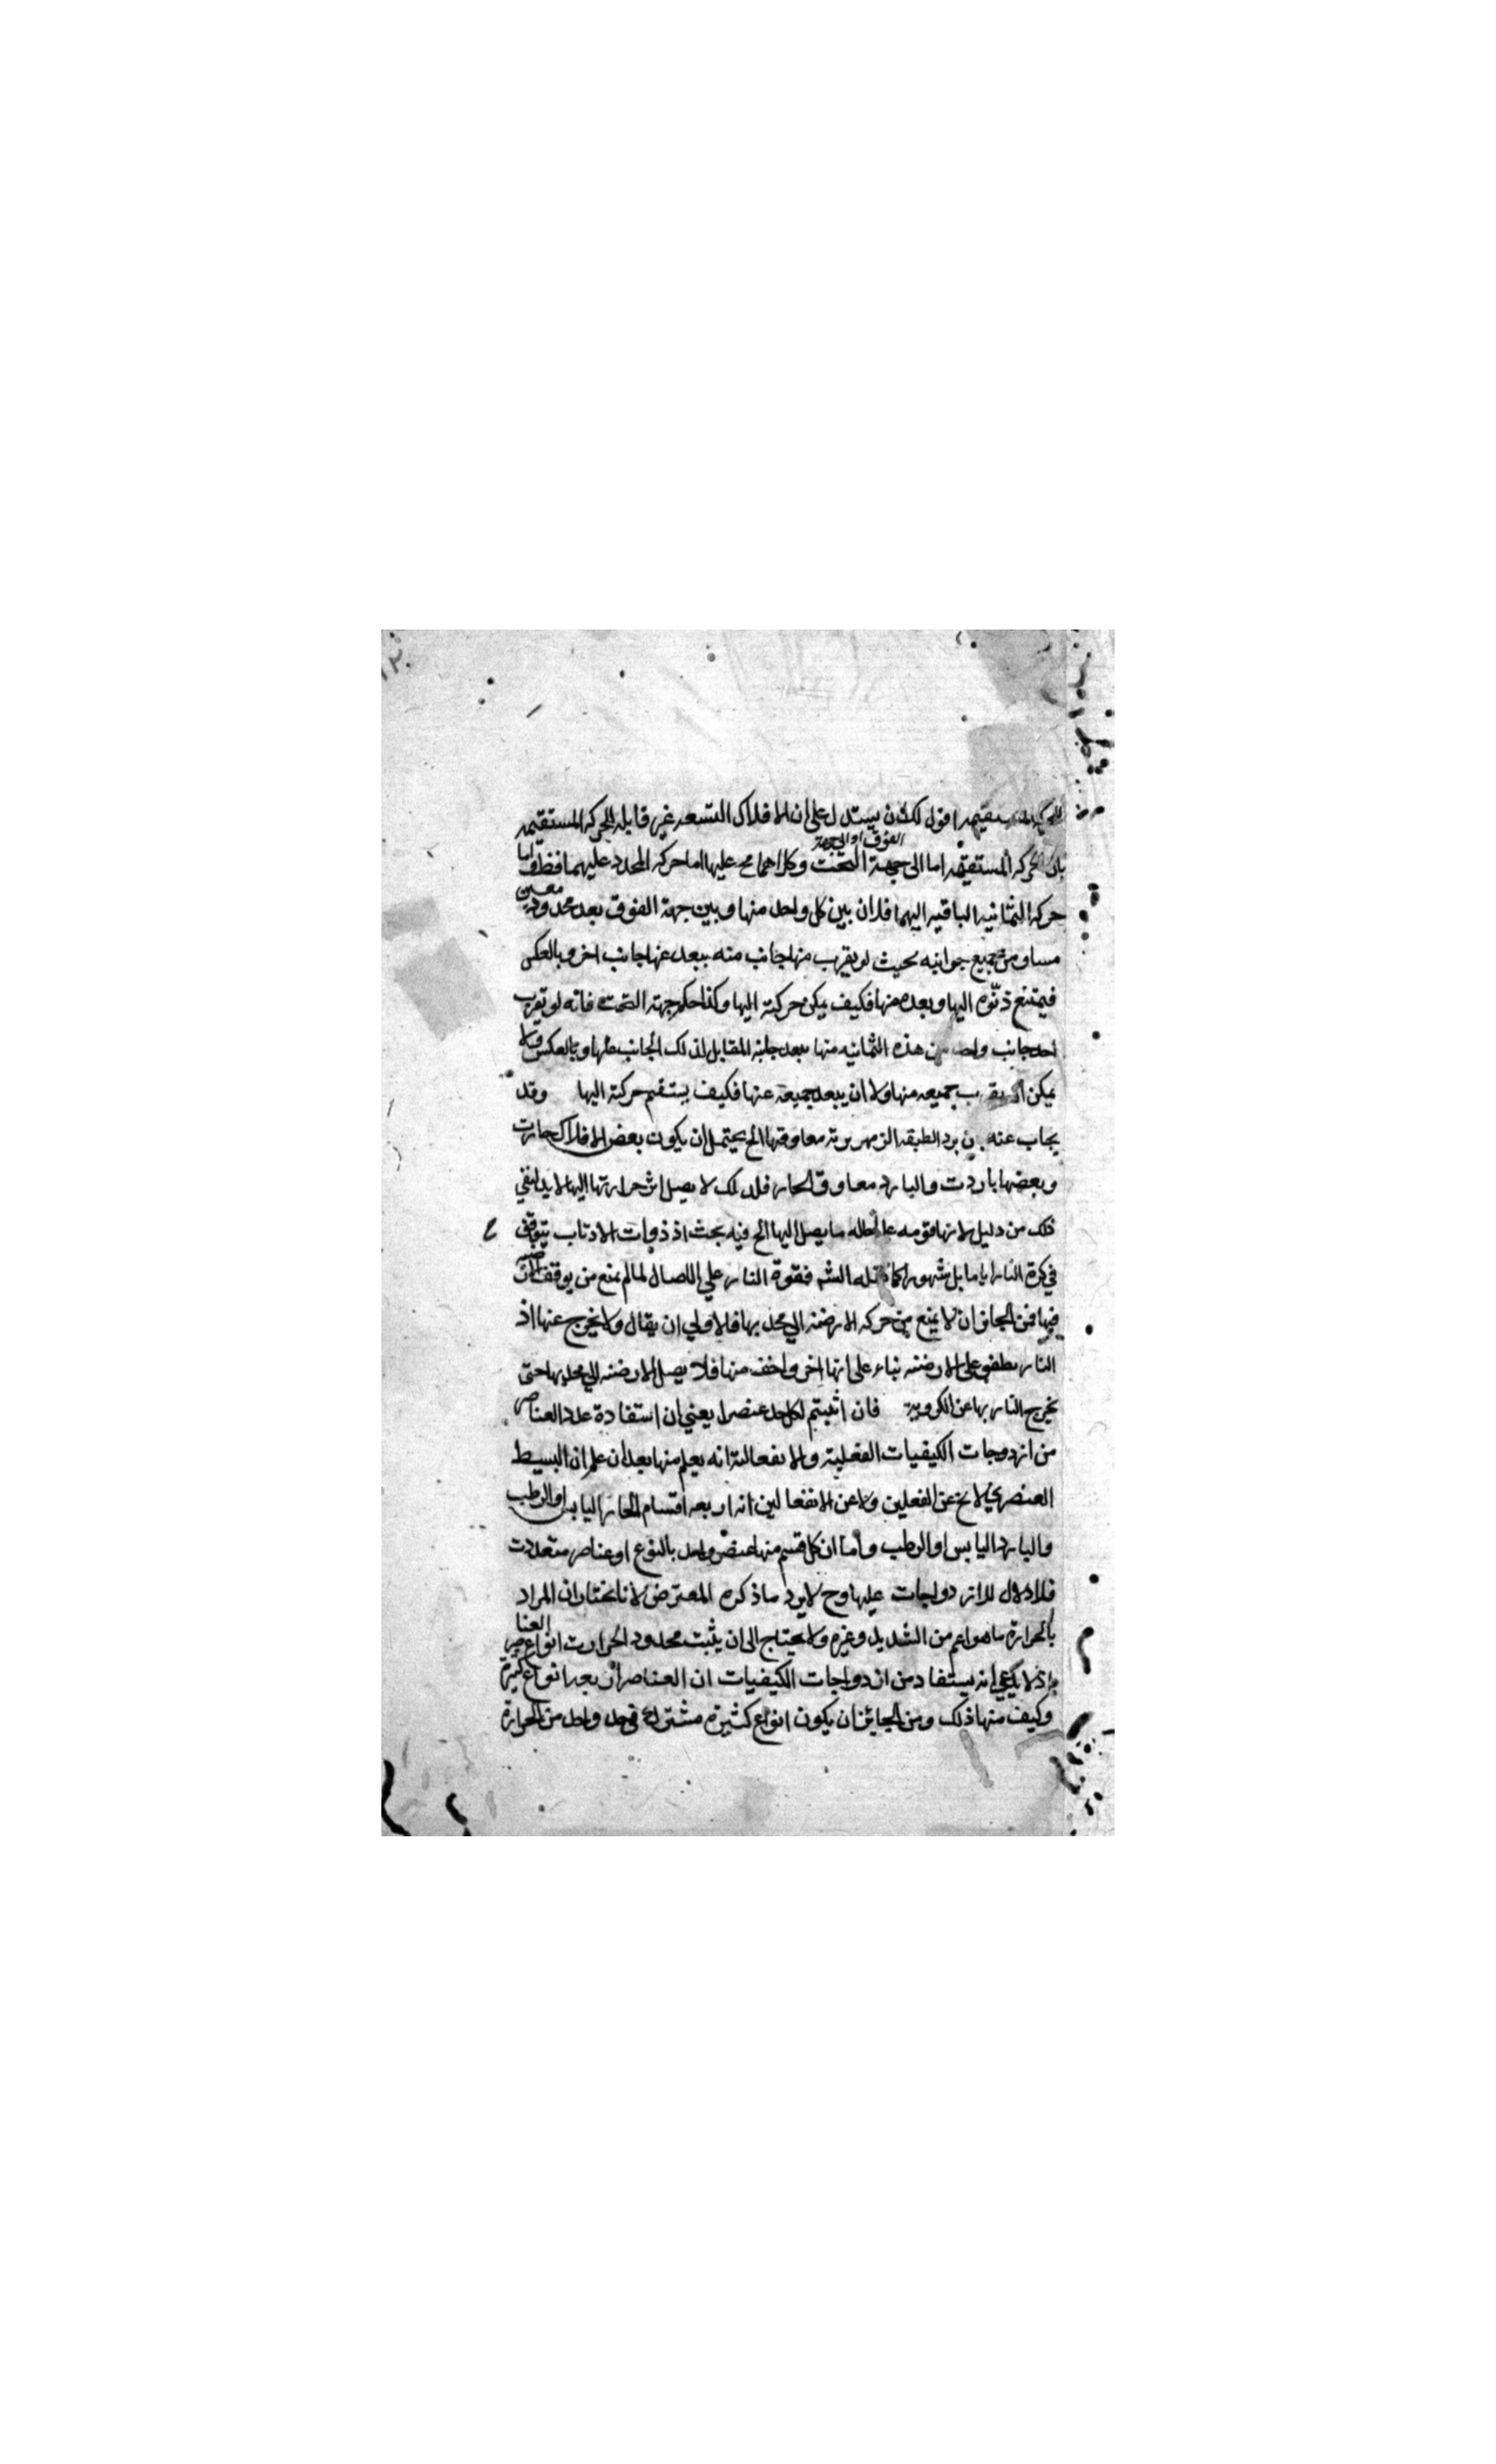 المستقيمة اقول لك ان يستدل على ان الافلاك التسعه غير قابله للحركه المستقيمه
بان الحركه المستقيمه اما الى جهة الفوق او الى جهة التحت وكلاهما مح عليها اما حركه المحدد عليهما فظ واما
حركه الثمانيه الباقيه اليهما فلان بين كل واحد منها وبين جهة الفوق بعد محدود معين
مساو من جميع جوانبه بحيث لو يقرب منها جانب منه يبعد عنها جانب اخر وبالعكس
فيمتنع دنوه اليها وبعده منها فكيف يمكن حركته اليها وكذا حكم جهة التحت فانه لو تقرب
احد جانب واحد من هذه الثمانيه منها يبعد جانبه المقابل لذلك الجانب عنها وبالعكس ولا
يمكن ان يقرب جميعه منها ولا ان يبعد جميعه عنها فكيف يستقيم حركته اليها وقد
يجاب عنه بان برد الطبقه الزمهريرية معاوقها الخ يحتمل ان يكون بعض الافلاك حارت
وبعضها باردت والبارد معاوق الحار فلذلك لا يصل اثر حرارتها اليها لا بد لنفي
ذلك من دليل لانها قويه على احاله ما يصل اليها الخ فيه بحث اذ ذوات الاذناب يتوقف
في كرة النار اياما بل شهورا كما نقله الشه فقوة النار على الاتصال لما لم يمنع من توقف الارضيه
فيها فمن الجائز ان لا يمنع من حركه الارضيه الى محدبها فالاولي ان يقال ولا يخرج عنها اذ
النار يطفو على الارضيه بناء على انها اخر واخف منها فلا يصل الارضيه الي محدبها حتى
يخرج النار بها عن الكروية فان اثبتم لكل حد عنصرا يعني ان استفادة عدد العناصر
من ازدوجات الكيفيات الفعلية والانفعالية انه يعلم منها بعد ان علم ان البسيط
العنصري لا يخ عن الفعلين ولا عن الانفعالين انه اربعه اقسام الحار اليابس او الرطب
والبارد اليابس او الرطب واما ان كل قسم منها عنصر واحد بالنوع او عناصر متعددت
فلا دلال للازدواجات عليها وح لا يرد ما ذكره المعترض لانا نختار ان المراد
بالحرارة ما هو اعم من الشديد وغيره ولا يحتاج الى ان يثبت محدود الحرارت انواع العناصر
اذ لا يدعي انه يستفاد من ازدواجات الكيفيات ان العناصر اربعه انواع كثيرة
وكيف منها ذلك ومن الجائز ان يكون انواع كثيرة مشتركة في حد واحد من الحرارة